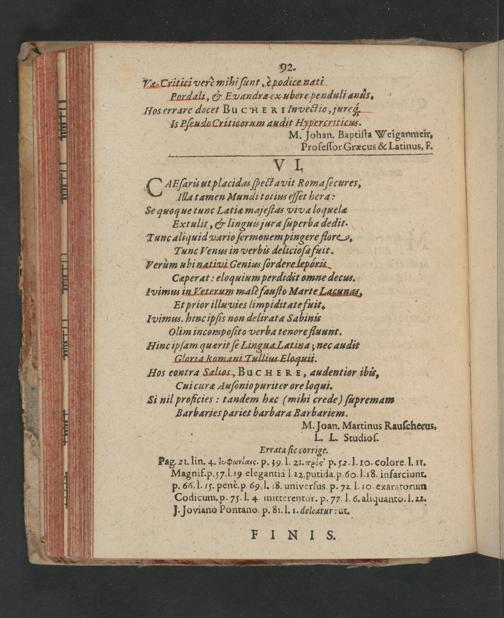 92.
Væ Critici verè mihi sunt, è podice nati
Pordali, & Evandræ ex ubere penduli anûs.
Hos errare docet BUCHERI Invectio, jureq́;
Is Pseudo Criticorum audit Hypercriticus.
M. Johan. Baptista Weiganmeir,
Professor Græcus & Latinus, F.
VI.
CAEsaris ut placidas spectavit Roma secures,
Illa tamen Mundi totius esset hera:
Se quoque tunc Latiæ majestas viva loquelæ
Extulit, & linguis jura superba dedit.
Tunc aliquid vario sermonem pingere flore,
Tunc Venus in verbis deliciosa fuit.
Verùm ubi nativi Genius sordere leporis
Cæperat: eloquium perdidit omne decus.
Ivimus in Veterum malè fausto Marte Lacunas,
Et prior illuvies limpiditate fuit.
Ivimus. hinc ipsis non delirata Sabinis
Olim incomposito verba tenore fluunt.
Hinc ipsam quærit se Lingua Latina; nec audit
Gloria Romani Tullius Eloquii.
Hos contra Salios, BUCHERE, audentior ibis,
Cui curæ Ausonio puriter ore loqui.
Si nil proficies: tandem hac (mihi crede) supremam
Barbaries pariet barbara Barbariem.
M. Joan. Martinus Rauscherus.
L. L. Studios.
Errata sic corrige.
Pag. 21. lin. 4. p. 39. l. 21. πρὸς p. 52. l. 10. colore. l. 11.
Magnis. p. 57. l. 19 elegantiâ l. 22. putida. p. 60. l. 18. infarciunt.
p. 66. l. 15. penè. p. 69. l. 18. universus. p. 72. l. 10. exaratorum
Codicum. p. 75. l. 4. mitterentur. p. 77. l. 6. aliquanto. l. 22.
J. Joviano Pontano. p. 81. l. 1. deleatur: ut.
FINIS.